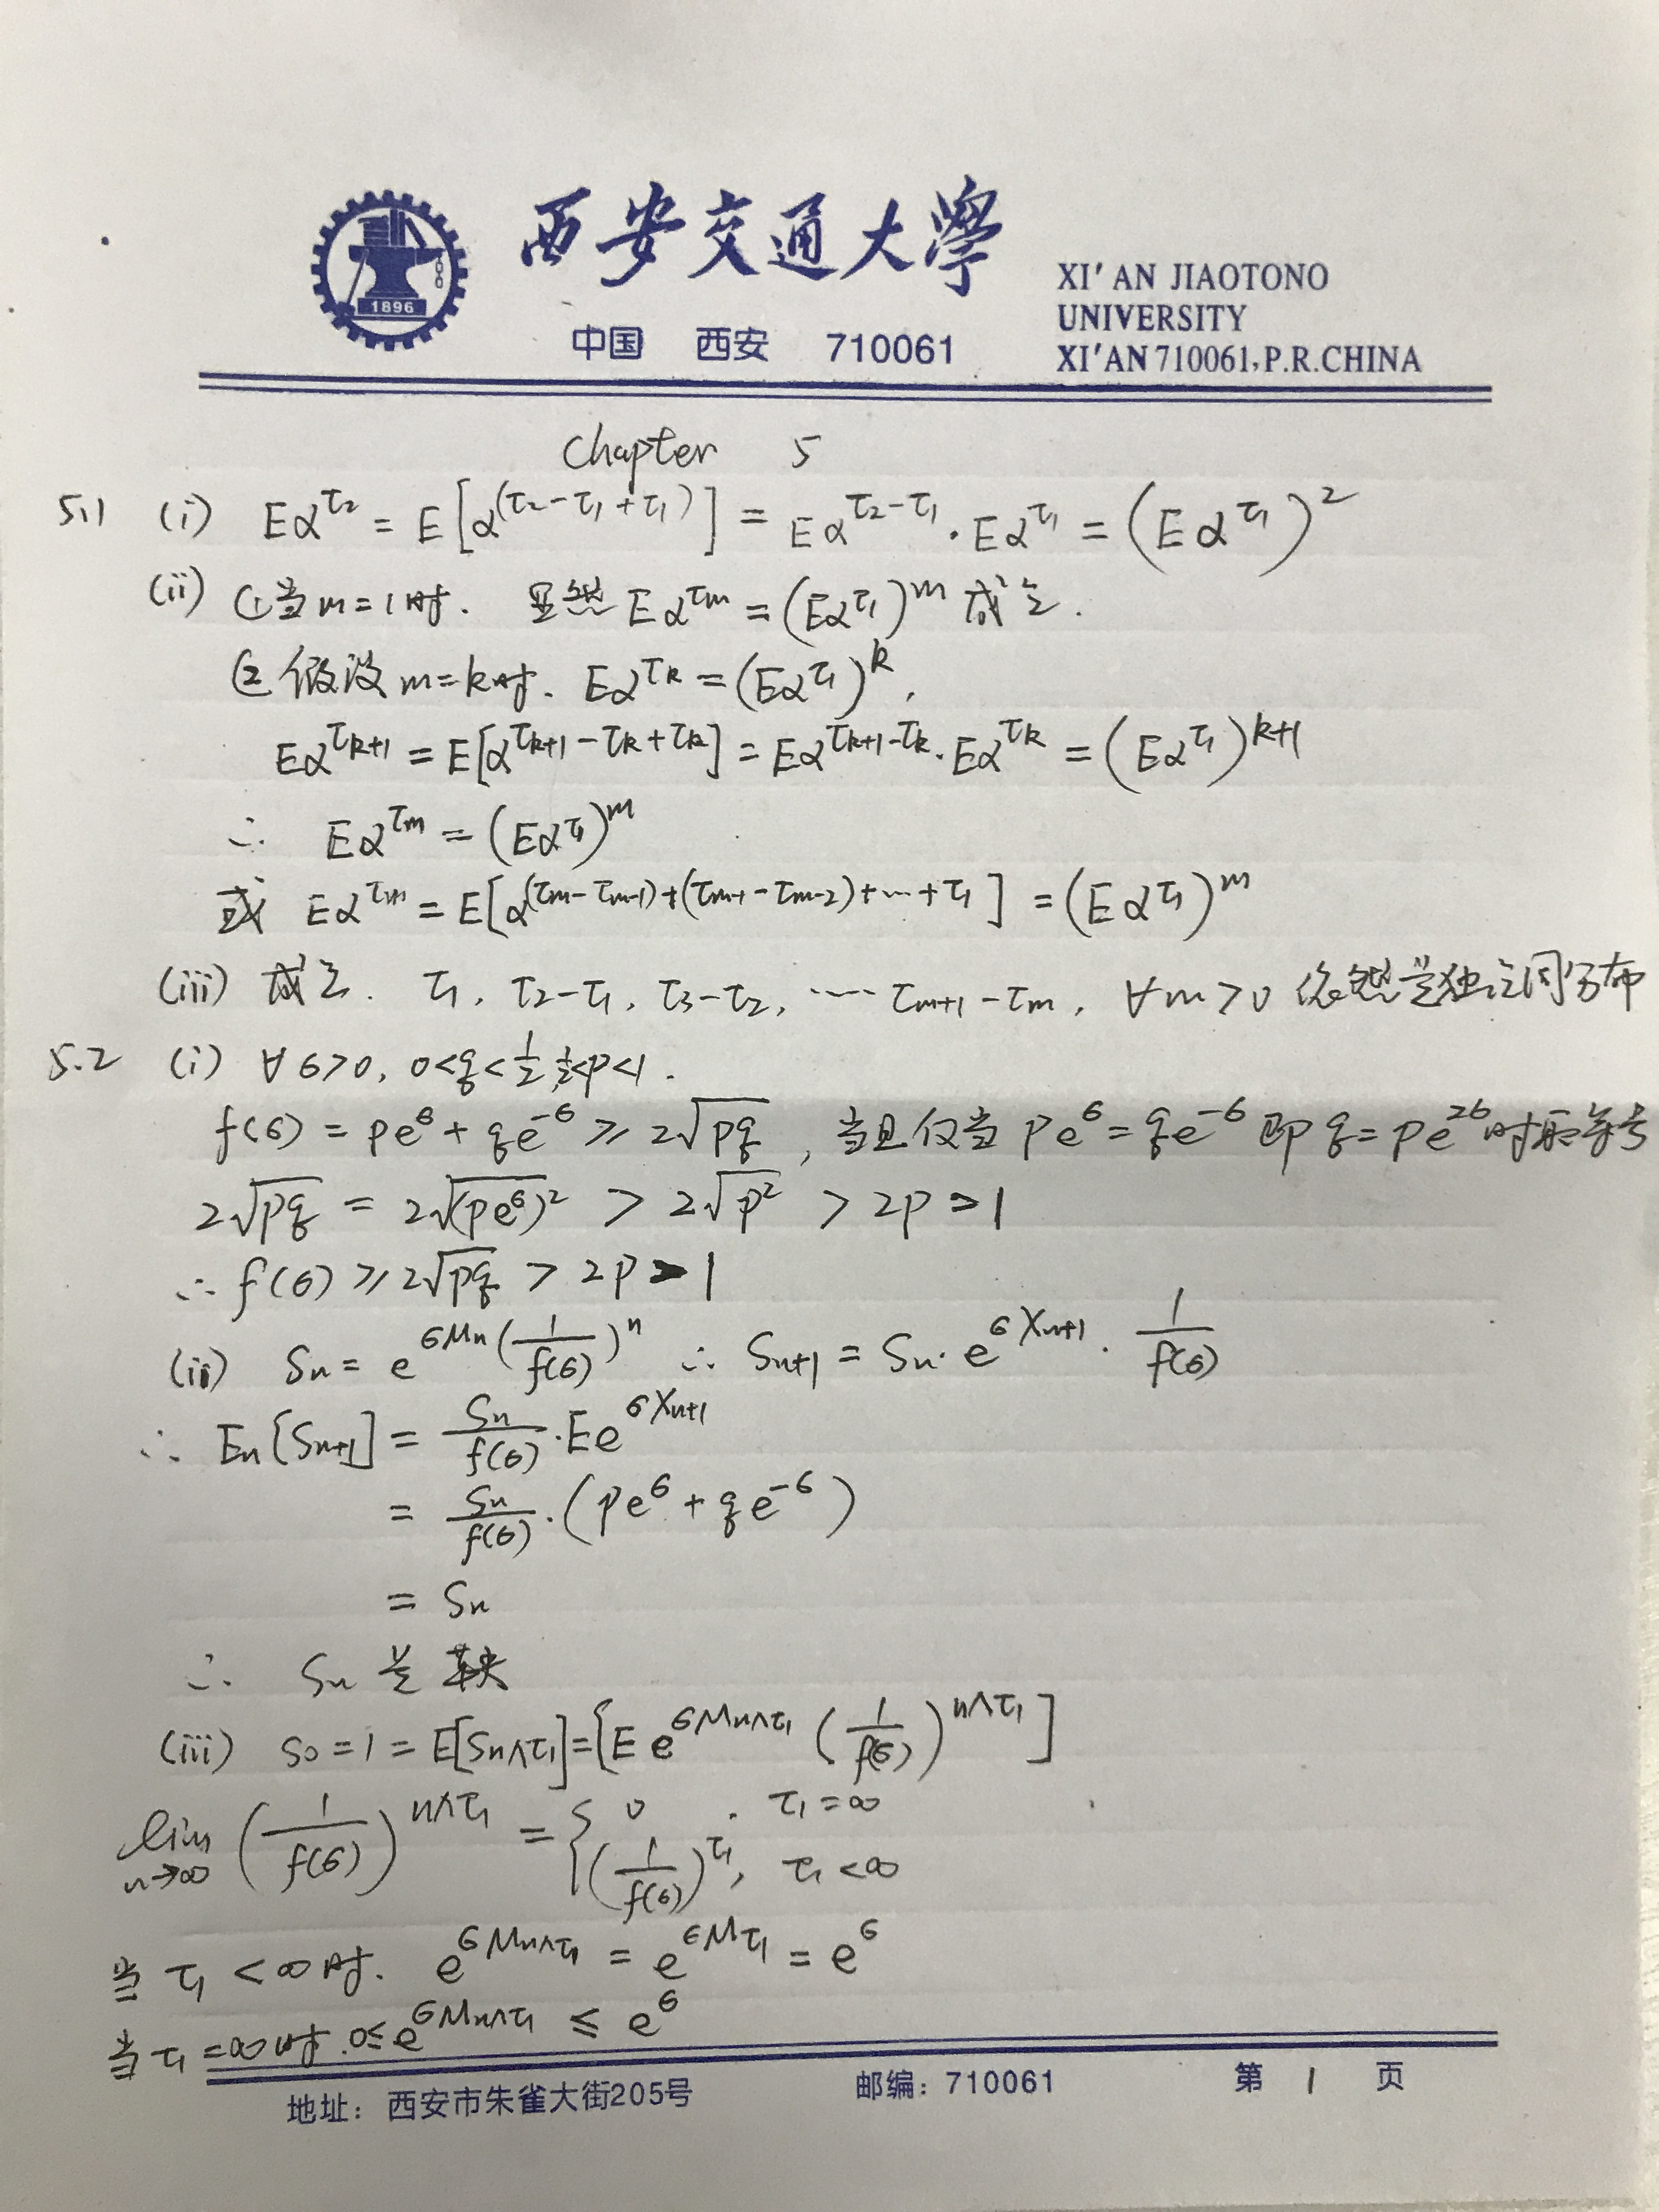 1896
西安交通大學
中国 西安 710061
XI' AN JIAOTONO
UNIVERSITY
XI'AN 710061,P.R.CHINA
Chapter 5
5.1 (i) Eα^{τ₂} = E[α^{(τ₂-τ₁+τ₁)}] = Eα^{τ₂-τ₁}·Eα^{τ₁} = (Eα^{τ₁})²
(ii) ①当m=1时. 显然 Eα^{τm} = (Eα^{τ₁})^m 成立.
②假设m=k时. Eα^{τk} = (Eα^{τ₁})^k,
Eα^{τk+1} = E[α^{τk+1-τk+τk}] = Eα^{τk+1-τk}·Eα^{τk} = (Eα^{τ₁})^{k+1}
∴ Eα^{τm} = (Eα^{τ₁})^m
或 Eα^{τm} = E[α^{(τm-τm-1)+(τm-1-τm-2)+…+τ₁}] = (Eα^{τ₁})^m
(iii) 成立. τ₁, τ₂-τ₁, τ₃-τ₂, …… τm+1-τm, ∀m>0 依然是独立同分布
5.2 (i) ∀σ>0, 0<q<1/2, 1/2<p<1.
f(σ) = pe^σ + qe^{-σ} ≥ 2√(pq), 当且仅当 pe^σ = qe^{-σ} 即 q = pe^{2σ} 时取等号
2√(pq) = 2√((pe^σ)²) > 2√(p²) > 2p > 1
∴ f(σ) ≥ 2√(pq) > 2p > 1
(ii) Sn = e^{σMn}(1/f(σ))^n ∴ Sn+1 = Sn·e^{σXn+1}·1/f(σ)
∴ En[Sn+1] = Sn/f(σ)·Ee^{σXn+1}
= Sn/f(σ)·(pe^σ + qe^{-σ})
= Sn
∴ Sn 是鞅
(iii) S₀ = 1 = E[Sn∧τ₁] = [E e^{σMn∧τ₁}(1/f(σ))^{n∧τ₁}]
lim n→∞ (1/f(σ))^{n∧τ₁} = { 0, τ₁=∞
(1/f(σ))^{τ₁}, τ₁<∞
当 τ₁<∞时. e^{σMn∧τ₁} = e^{σMτ₁} = e^σ
当τ₁=∞时. 0≤e^{σMn∧τ₁} ≤ e^σ
地址：西安市朱雀大街205号 邮编：710061 第 1 页